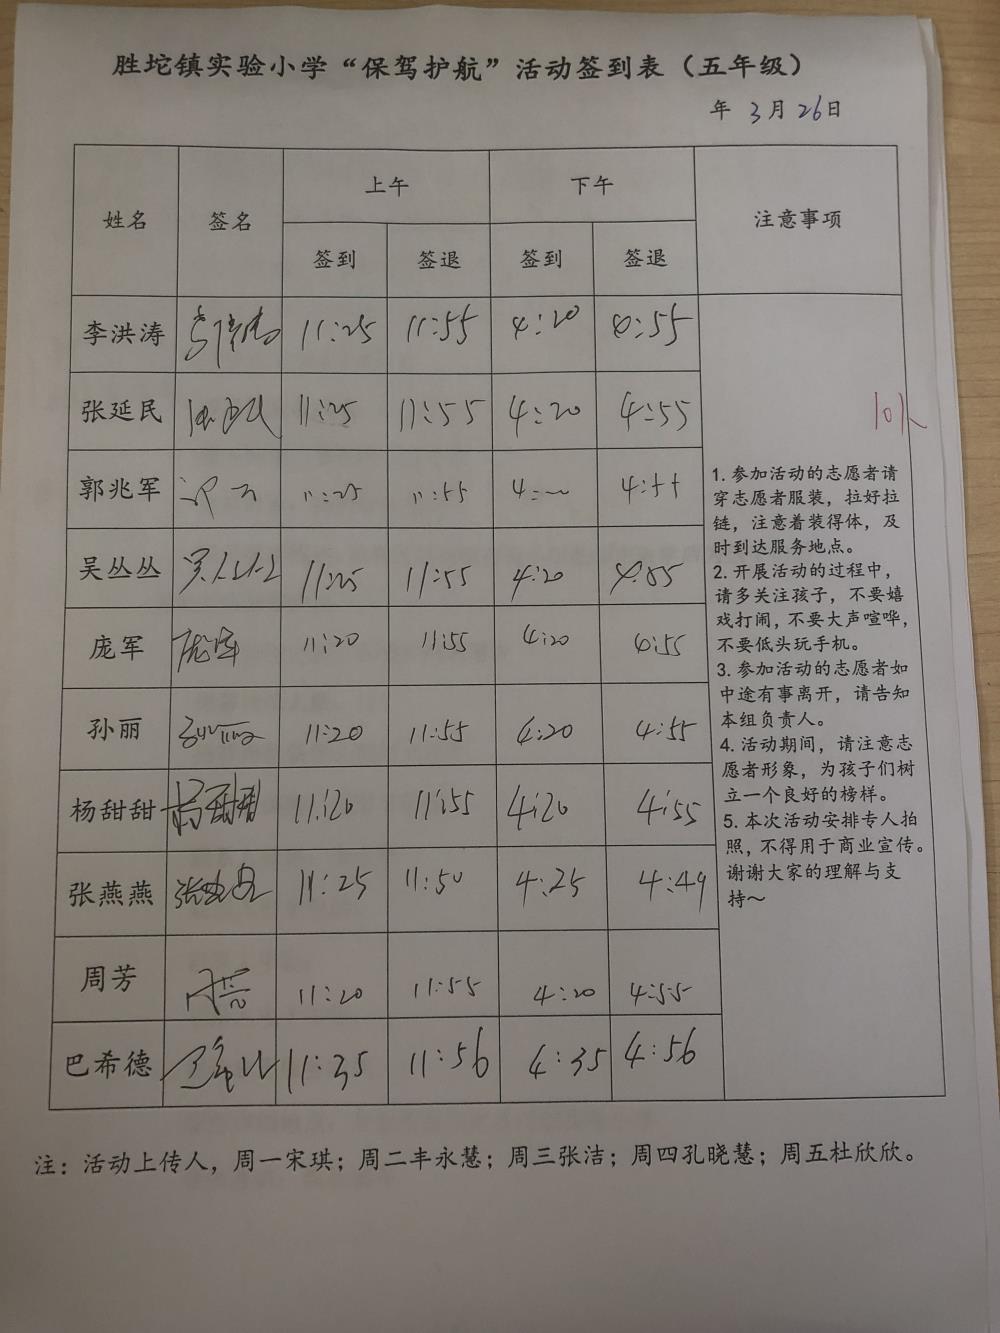 胜坨镇实验小学“保驾护航”活动签到表（五年级）
年 3月 26日
姓名 签名 上午 下午 注意事项
签到 签退 签到 签退
李洪涛 11:25 11:55 4:20 4:55
张延民 11:25 11:55 4:20 4:55
郭兆军 11:25 11:55 4:55
吴丛丛 11:25 11:55 4:20 4:55
庞军 庞军 11:20 11:55 4:20 4:55
孙丽 孙丽 11:20 11:55 4:20 4:55
杨甜甜 杨甜甜 11:20 11:55 4:20 4:55
张燕燕 11:25 11:50 4:25 4:49
周芳 周芳 11:20 11:55 4:20 4:55
巴希德 11:35 11:56 4:35 4:56
10人
1. 参加活动的志愿者请
穿志愿者服装，拉好拉
链，注意着装得体，及
时到达服务地点。
2. 开展活动的过程中，
请多关注孩子，不要嬉
戏打闹，不要大声喧哗，
不要低头玩手机。
3. 参加活动的志愿者如
中途有事离开，请告知
本组负责人。
4. 活动期间，请注意志
愿者形象，为孩子们树
立一个良好的榜样。
5. 本次活动安排专人拍
照，不得用于商业宣传。
谢谢大家的理解与支
持～
注：活动上传人，周一宋琪；周二丰永慧；周三张洁；周四孔晓慧；周五杜欣欣。